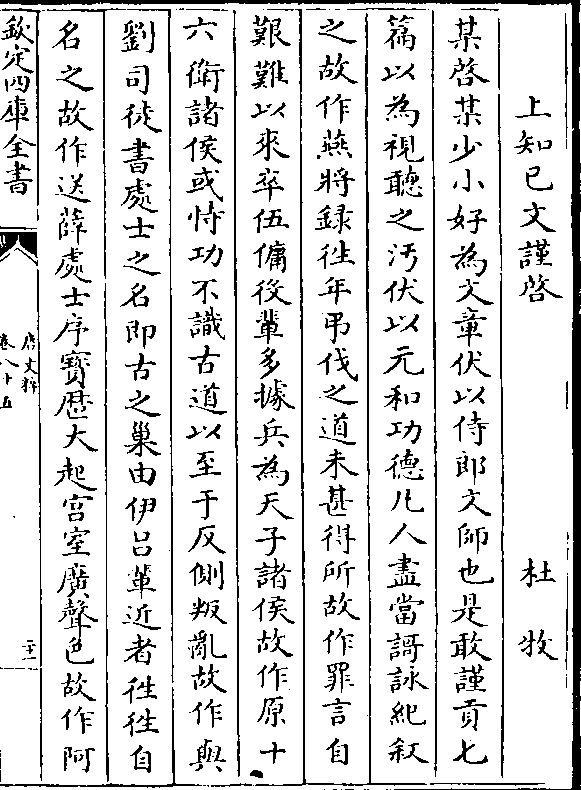 上知已文謹啓
杜牧
某啓某少小好為文章伏以侍郎文師也是敢謹貢七
篇以為視聽之汚伏以元和功德凡人盡當謌詠紀叙
之故作燕將録徃年弔伐之道未甚得所故作罪言自
艱難以來卒伍傭役輩多據兵為天子諸侯故作原十
六衛諸侯或恃功不識古道以至于反側叛亂故作與
劉司徒書處士之名即古之巢由伊吕輩近者徃徃自
名之故作送薛處士序寶歴大起宫室廣聲色故作阿
欽定四庫全書
唐文粹
卷八十五